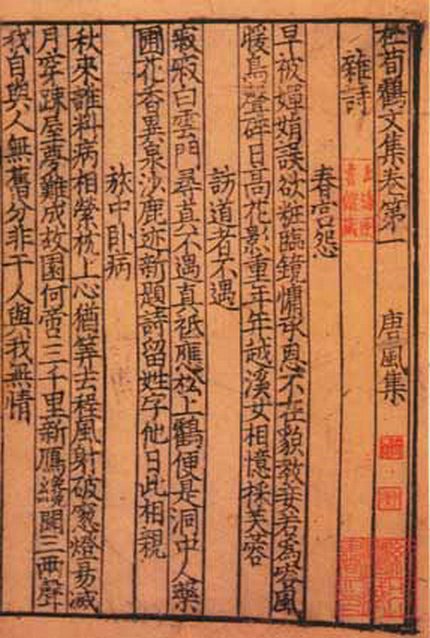 杜荀鶴文集卷第一 唐風集
雜詩
春宫怨
早被嬋娟誤欲粧臨鏡慵承恩不在貌教妾若為容風
暖鳥聲碎日高花影重年年越溪女相憶採芙蓉
訪道者不遇
寂寂白雲門尋真不遇真祗應松上鶴便是洞中人藥
圃花香異泉沙鹿迹新題詩留姓字他日此相親
旅中卧病
秋來誰料病相縈枕上心猶筭去程風射破窓燈易滅
月穿踈屋夢難成故園何啻三千里新鴈纔聞三兩聲
我自與人無舊分非干人與我無情